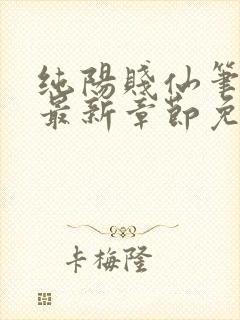 纯陽賤仙筆
最新章節免
卡梅隆